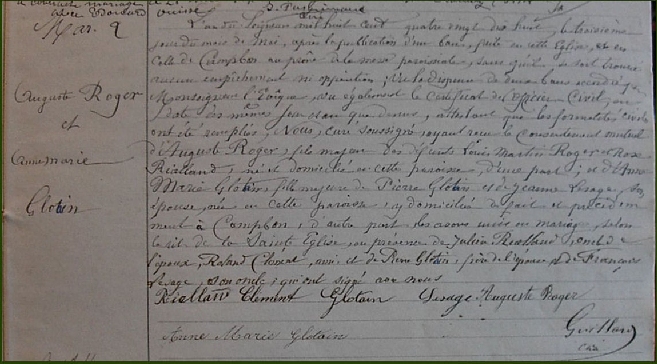 Mar. 9
Auguste Roger
et
Anne marie
Glotin
L'an du Seigneur mil huit cent quatre vingt dix huit, le troisième
jour du mois de Mai, après la publication d'un ban, faite en cette Église, et en
celle de Campbon au prône de la messe paroissiale, sans qu'il se soit trouvé
aucun empêchement ni opposition; Vu la dispense de deux bans accordée par
Monseigneur l'Évêque, vu également le certificat des Officier Civil, en
date des mêmes jour et an que dessus, attestant que les formalités civiles
ont été remplies, Nous, curé soussigné ayant reçu le consentement mutuel
d'Auguste Roger, fils majeur des défunts Louis Martin Roger et Rose
Rialland, né et domicilié en cette paroisse, d'une part; et d'Anne
Marie Glotin, fille majeure de Pierre Glotin et de Jeanne Lesage, son
épouse, née en cette paroisse, y domiciliée de fait et précédem
ment à Campbon, d'autre part, les avons unis en mariage, selon
le rit de la Sainte Église, en présence de Julien Rialland, oncle de
l'époux, Clement, ami, et de Pierre Glotin, frère de l'épouse, et de François
Lesage, son oncle, qui ont signé avec nous
Riallan Clement Glotain Lesage Auguste Roger
Anne Marie Glotain